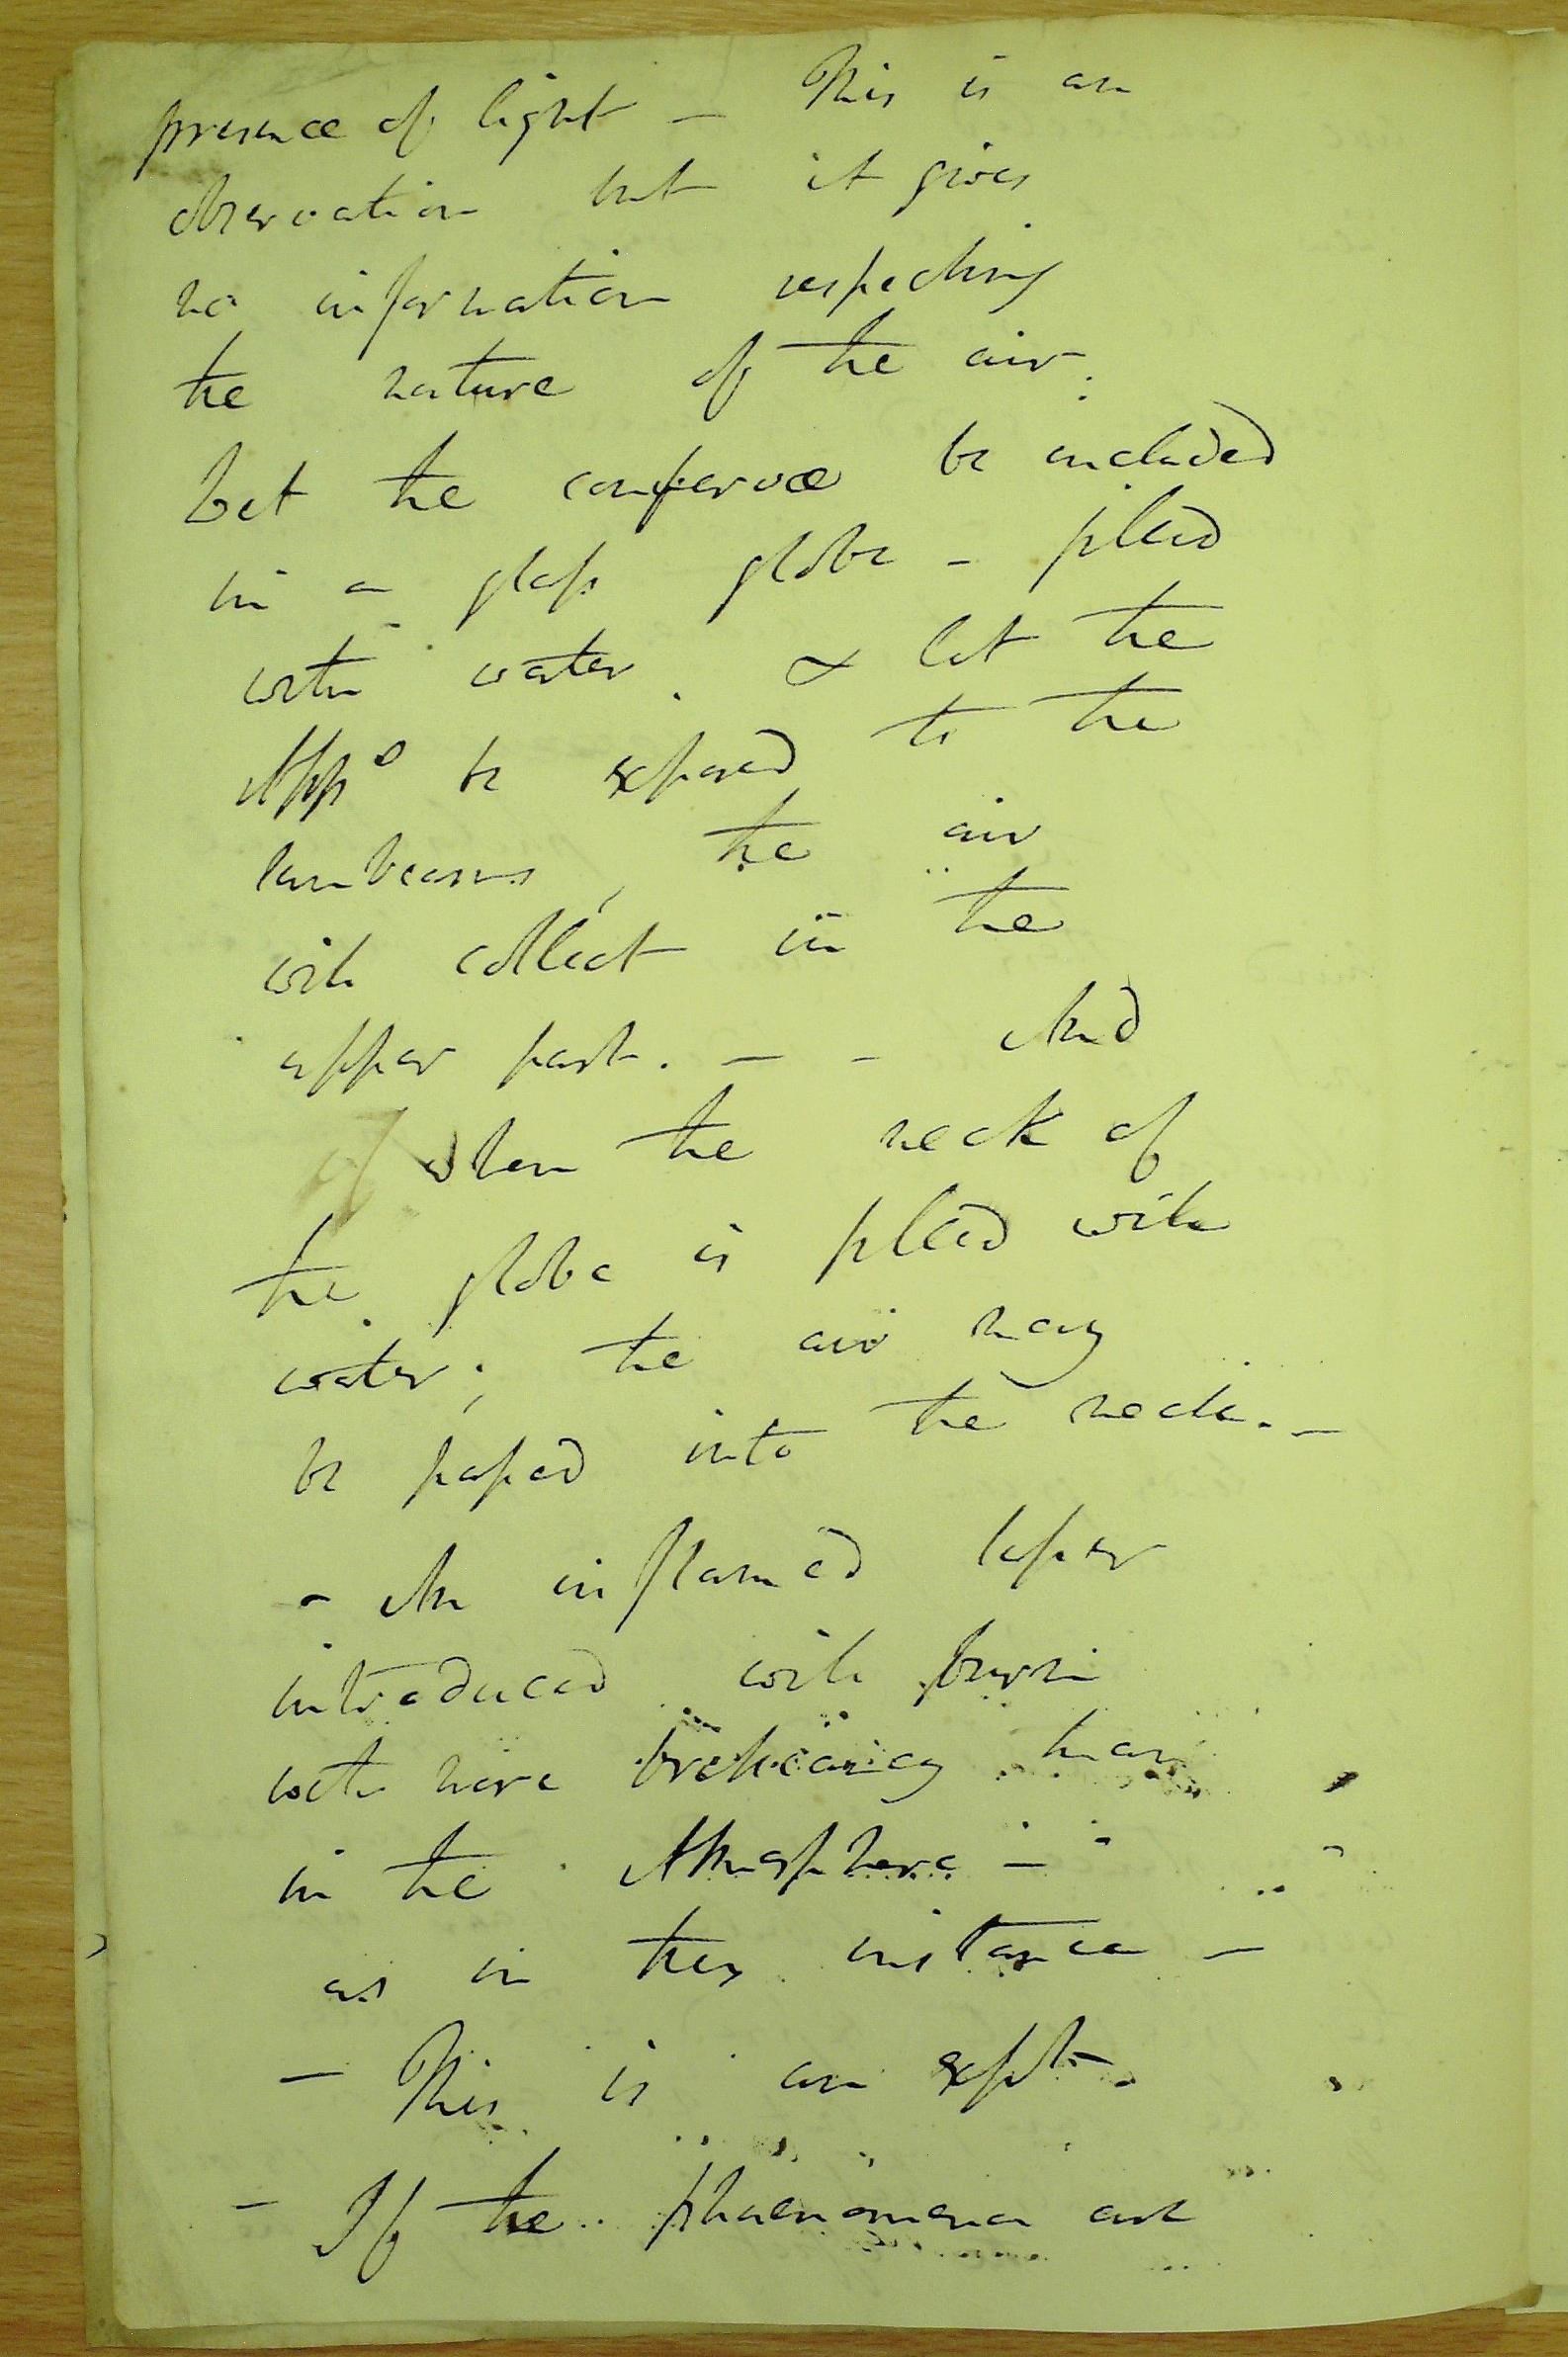 presence of light – This is an
observation but it gives
no information respecting
the nature of the air.
Let the confervae be included
in a glass globe – filled
with water. & let the
App.s be exposed to the
sunbeams, the air
will collect in the
upper part. – – And
when the neck of
the globe is filled with
water; the air may
be passed into the neck. –
– An inflamed taper
introduced will burn
with more brilliancy than
in the Atmosphere –
as in this instance –
– This is an expt.
– If the phaenomena are